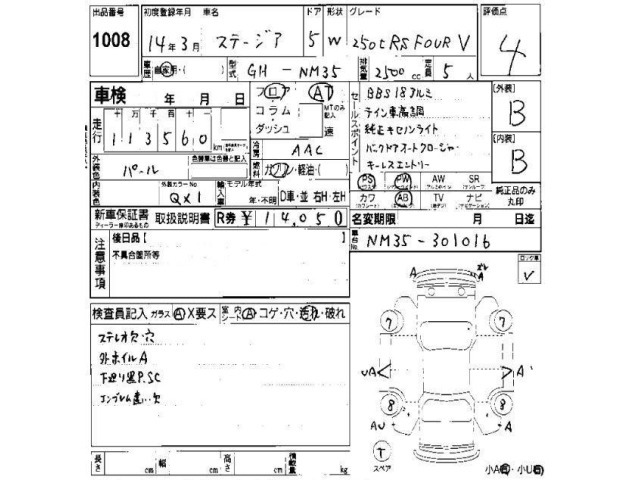 出品番号 初度登録年月 車名 ドア 形状 グレード 評価点
1008 14年3月 ステージア 5 W 250t RS FOUR V 4
車歴 自家用・( ) 型式 GH - NM35 排気量 2500 cc 定員 5 人
車検 年 月 日 フロア AT
コラム MTのみ記入
ダッシュ 速
走行 十万 万 千 百 十
113560 km
冷房 AAC
燃料 ガソリン・軽油・( )
セールスポイント
BBS18アルミ
純正キセノンライト
バックドアオートクロージャー
キーレスエントリー
[外装]
B
[内装]
B
外装色 パール 色替車は色番と記入
内装色 外装カラーNo QX1 輸入車 モデル年式 年・不明 D車・並 右H・左H
PS PW AW SR
カワ AB TV ナビ
純正品のみ丸印
新車保証書 取扱説明書 R券 ¥14,050 名変期限 月 日迄
ディーラー車印あるもの
注意事項 後日品【 】
不具合箇所等
車台No NM35-301016
V
検査員記入 ガラス A X要ス 内 A コゲ・穴・汚れ・破れ
ステレオ欠・穴
外ホイルA
下廻り黒P.SC
エンブレム違い・欠
A ズレ A
7 7
UA A
8 8
AU A
T
スペア
小A・小U
長さ cm 幅 cm 高さ cm 積載量 kg